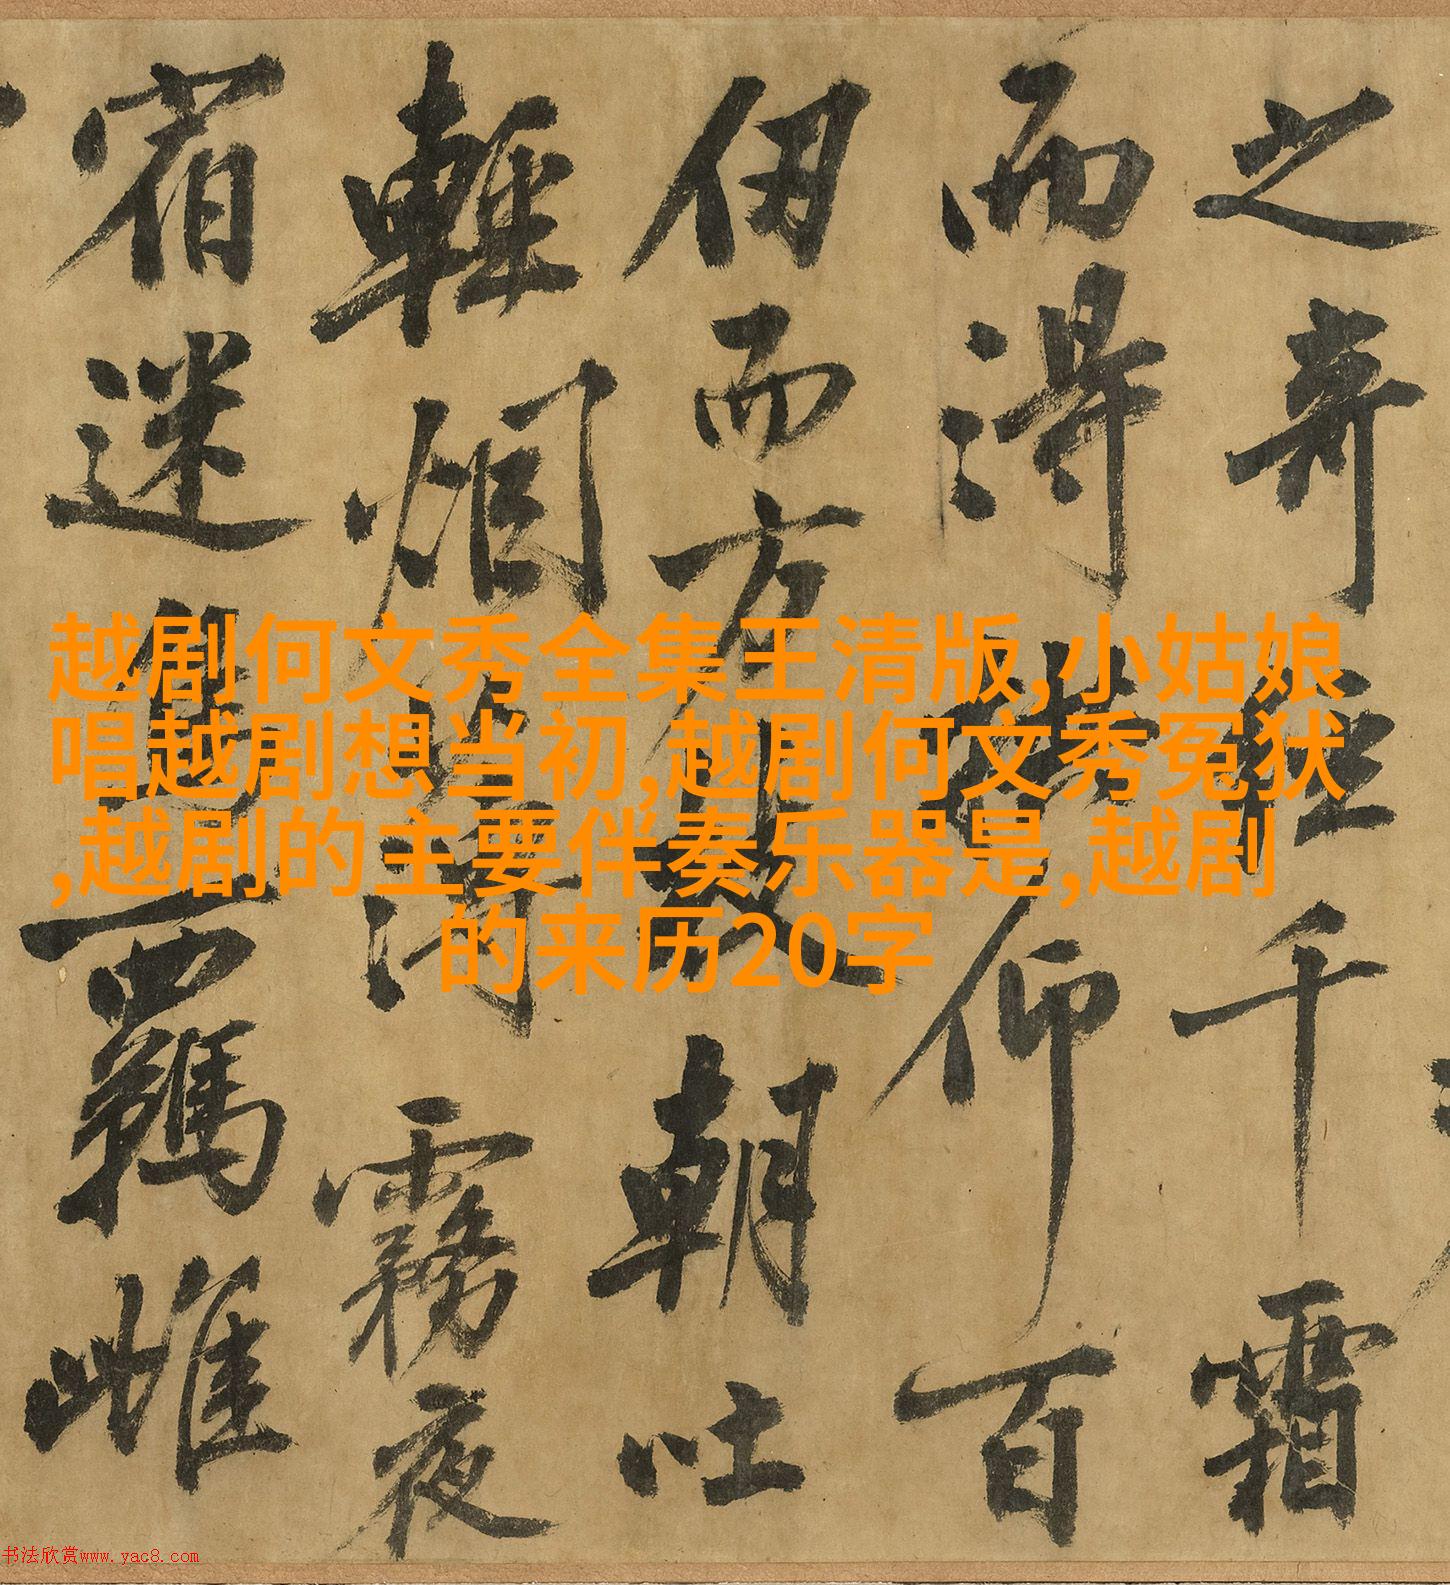 越剧何文秀全集王清版,小姑娘
唱越剧想当初,越剧何文秀冤犾
,越剧的主要伴奏乐器是,越剧
的来历20字
之奇千霜
而得仰百
伊而方朝吐
輕烟薄霧夜
宿迷而羈雌
书法欣赏www.yac8.com